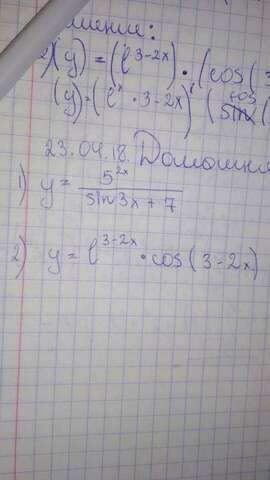 шение:
(y) = (e^{3-2x}) · (cos(
(y) = (e^{x} · 3-2x)' (cos
23.04.18. Домашня
1) y = \frac{5^{2x}}{sin3x + 7}
2) y = e^{3-2x} · cos(3-2x)